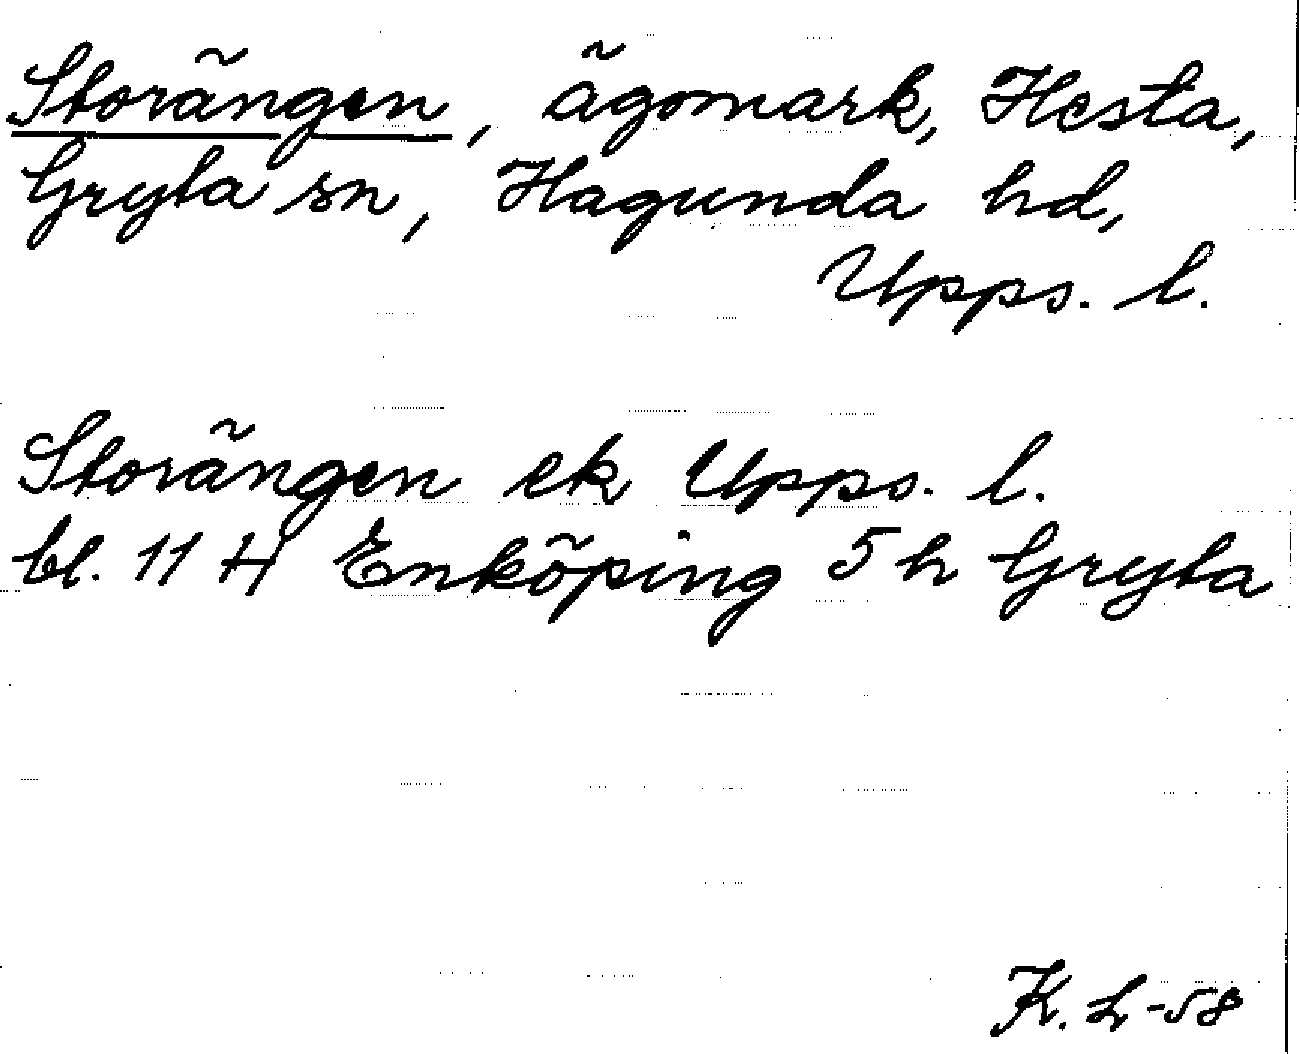 Storängen, ägomark, Hesta,
Gryta sn, Hagunda hd,
Upps. l.
Storängen ek Upps. l.
bl. 11 H Enköping 5 h Gryta
K. L -58